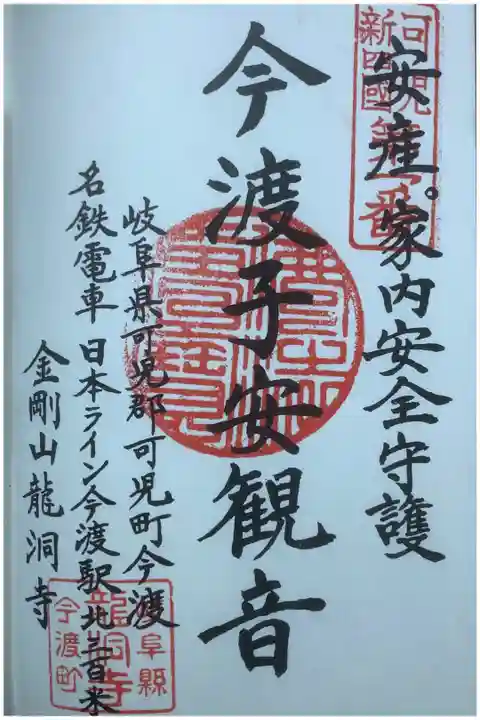 可児
新四國
第一番
安産。家内安全守護
今渡子安観音
岐阜県可児郡可児町今渡
名鉄電車日本ライン今渡駅北三百米
金剛山龍洞寺
阜縣
龍洞寺
今渡町